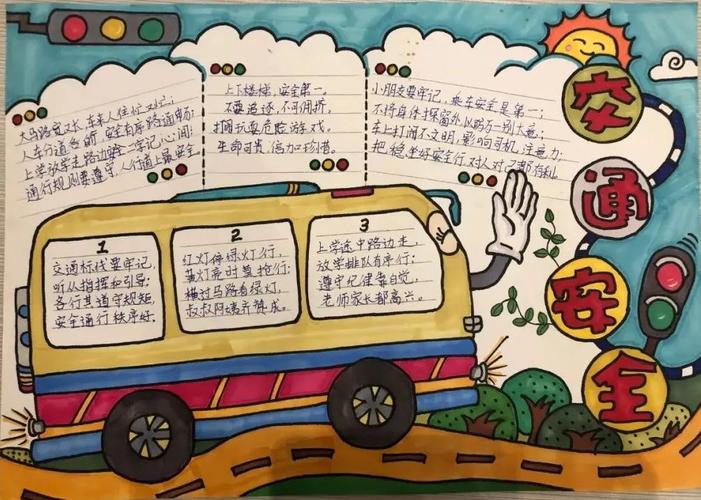 交通安全
大马路宽又长,车来人往忙又忙;
人车分道各前,安全有序路通畅;
上学放学走路边安全一定记心间;
通行规则要遵守,人行道上最安全。
上下楼梯,安全第一。
不要追逐,不可拥挤,
打闹玩耍危险游戏。
生命可贵,倍加珍惜。
小朋友要牢记,乘车安全是第一;
不将身体探窗外以防万一别大意;
车上打闹不文明,影响司机,注意力;
把稳坐好安全行,对人对己都有利
1
交通标线要牢记,
听从指挥和引导;
各行其道守规矩,
安全通行秩序好.
2
红灯停绿灯行,
黄灯亮时莫抢行;
横过马路看绿灯,
叔叔阿姨齐赞成。
3
上学途中路边走,
放学排队有序行;
遵守纪律靠自觉,
老师家长都高兴。